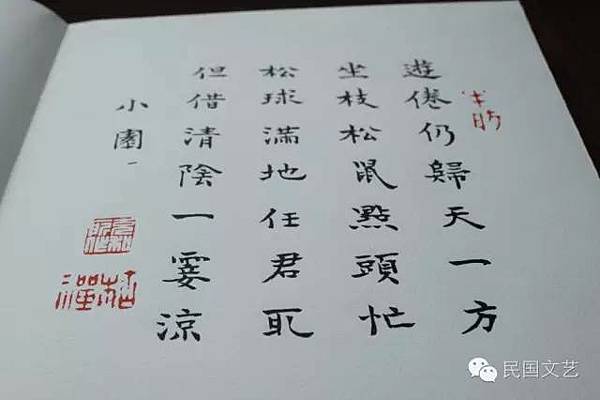 遊倦仍歸天一方
坐枝松鼠點頭忙
松球滿地任君取
但借清陰一霎涼
小園 一
民国文艺